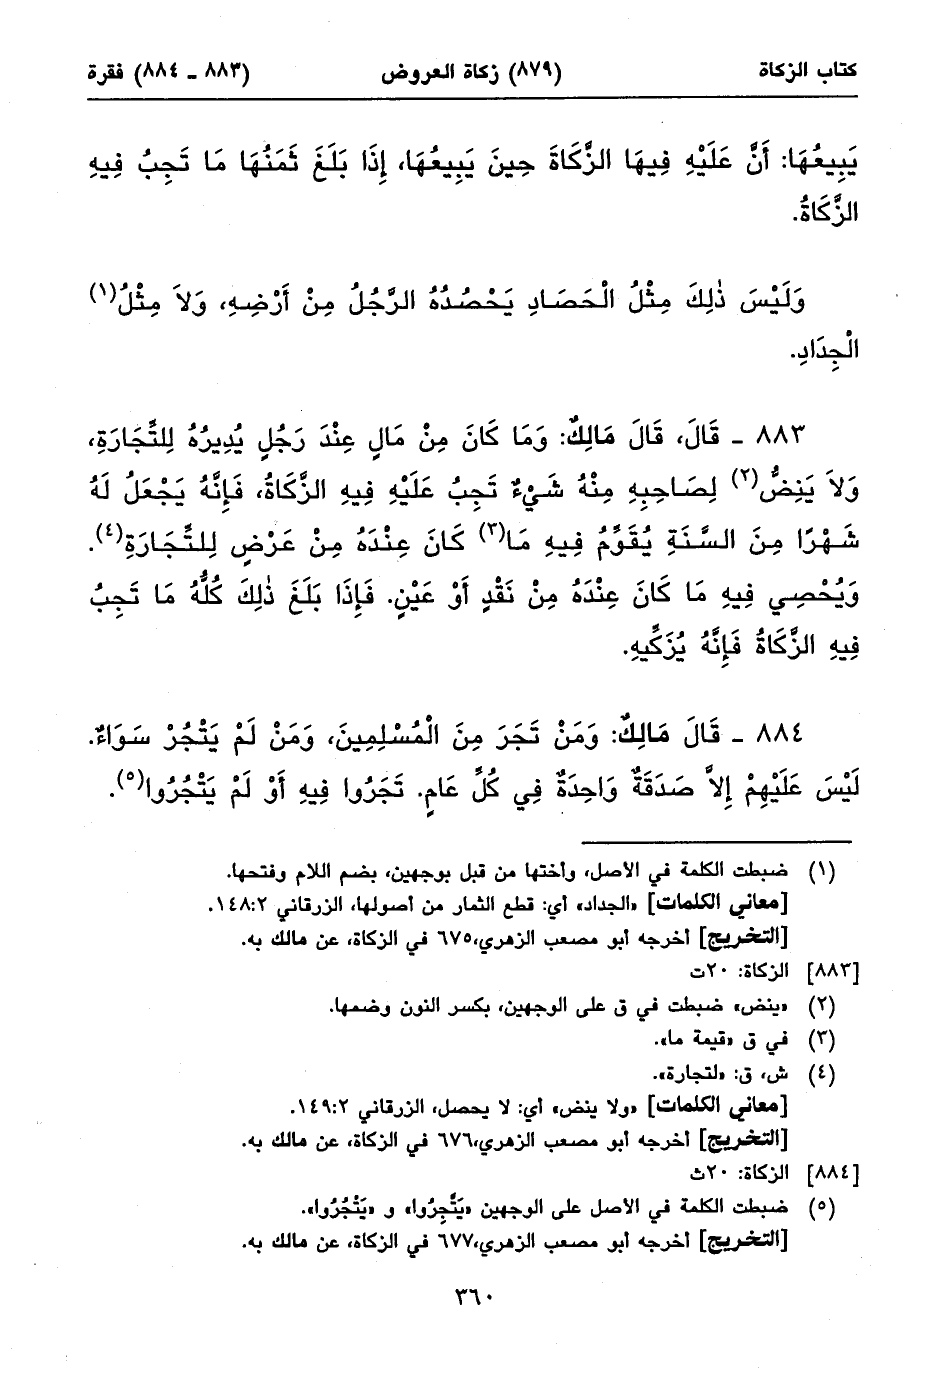 كتاب الزكاة (٨٧٩) زكاة العروض (٨٨٣ ـ ٨٨٤) فقرة
يَبِيعُهَا: أَنَّ عَلَيْهِ فِيهَا الزَّكَاةَ حِينَ يَبِيعُهَا، إِذَا بَلَغَ ثَمَنُهَا مَا تَجِبُ فِيهِ
الزَّكَاةُ.
وَلَيْسَ ذٰلِكَ مِثْلُ الْحَصَادِ يَحْصُدُهُ الرَّجُلُ مِنْ أَرْضِهِ، وَلاَ مِثْلُ(١)
الْجِدَادِ.
٨٨٣ ـ قَالَ، قَالَ مَالِكٌ: وَمَا كَانَ مِنْ مَالٍ عِنْدَ رَجُلٍ يُدِيرُهُ لِلتِّجَارَةِ،
وَلاَ يَنِضُّ(٢) لِصَاحِبِهِ مِنْهُ شَيْءٌ تَجِبُ عَلَيْهِ فِيهِ الزَّكَاةُ، فَإِنَّهُ يَجْعَلُ لَهُ
شَهْرًا مِنَ السَّنَةِ يُقَوَّمُ فِيهِ مَا(٣) كَانَ عِنْدَهُ مِنْ عَرْضٍ لِلتِّجَارَةِ(٤).
وَيُحْصِي فِيهِ مَا كَانَ عِنْدَهُ مِنْ نَقْدٍ أَوْ عَيْنٍ. فَإِذَا بَلَغَ ذٰلِكَ كُلُّهُ مَا تَجِبُ
فِيهِ الزَّكَاةُ فَإِنَّهُ يُزَكِّيهِ.
٨٨٤ ـ قَالَ مَالِكٌ: وَمَنْ تَجَرَ مِنَ الْمُسْلِمِينَ، وَمَنْ لَمْ يَتْجُرْ سَوَاءٌ.
لَيْسَ عَلَيْهِمْ إِلاَّ صَدَقَةٌ وَاحِدَةٌ فِي كُلِّ عَامٍ. تَجَرُوا فِيهِ أَوْ لَمْ يَتْجُرُوا(٥).
(١) ضبطت الكلمة في الأصل، وأختها من قبل بوجهين، بضم اللام وفتحها.
[معاني الكلمات] «الجداد» أي: قطع الثمار من أصولها، الزرقاني ١٤٨:٢.
[التخريج] أخرجه أبو مصعب الزهري،٦٧٥ في الزكاة، عن مالك به.
[٨٨٣] الزكاة: ٢٠ت
(٢) «ينض» ضبطت في ق على الوجهين، بكسر النون وضمها.
(٣) في ق «قيمة ما».
(٤) ش، ق: «لتجارة».
[معاني الكلمات] «ولا ينض» أي: لا يحصل، الزرقاني ١٤٩:٢.
[التخريج] أخرجه أبو مصعب الزهري،٦٧٦ في الزكاة، عن مالك به.
[٨٨٤] الزكاة: ٢٠ث
(٥) ضبطت الكلمة في الأصل على الوجهين «يَتَّجِرُوا» و «يَتْجُرُوا».
[التخريج] أخرجه أبو مصعب الزهري،٦٧٧ في الزكاة، عن مالك به.
٣٦٠